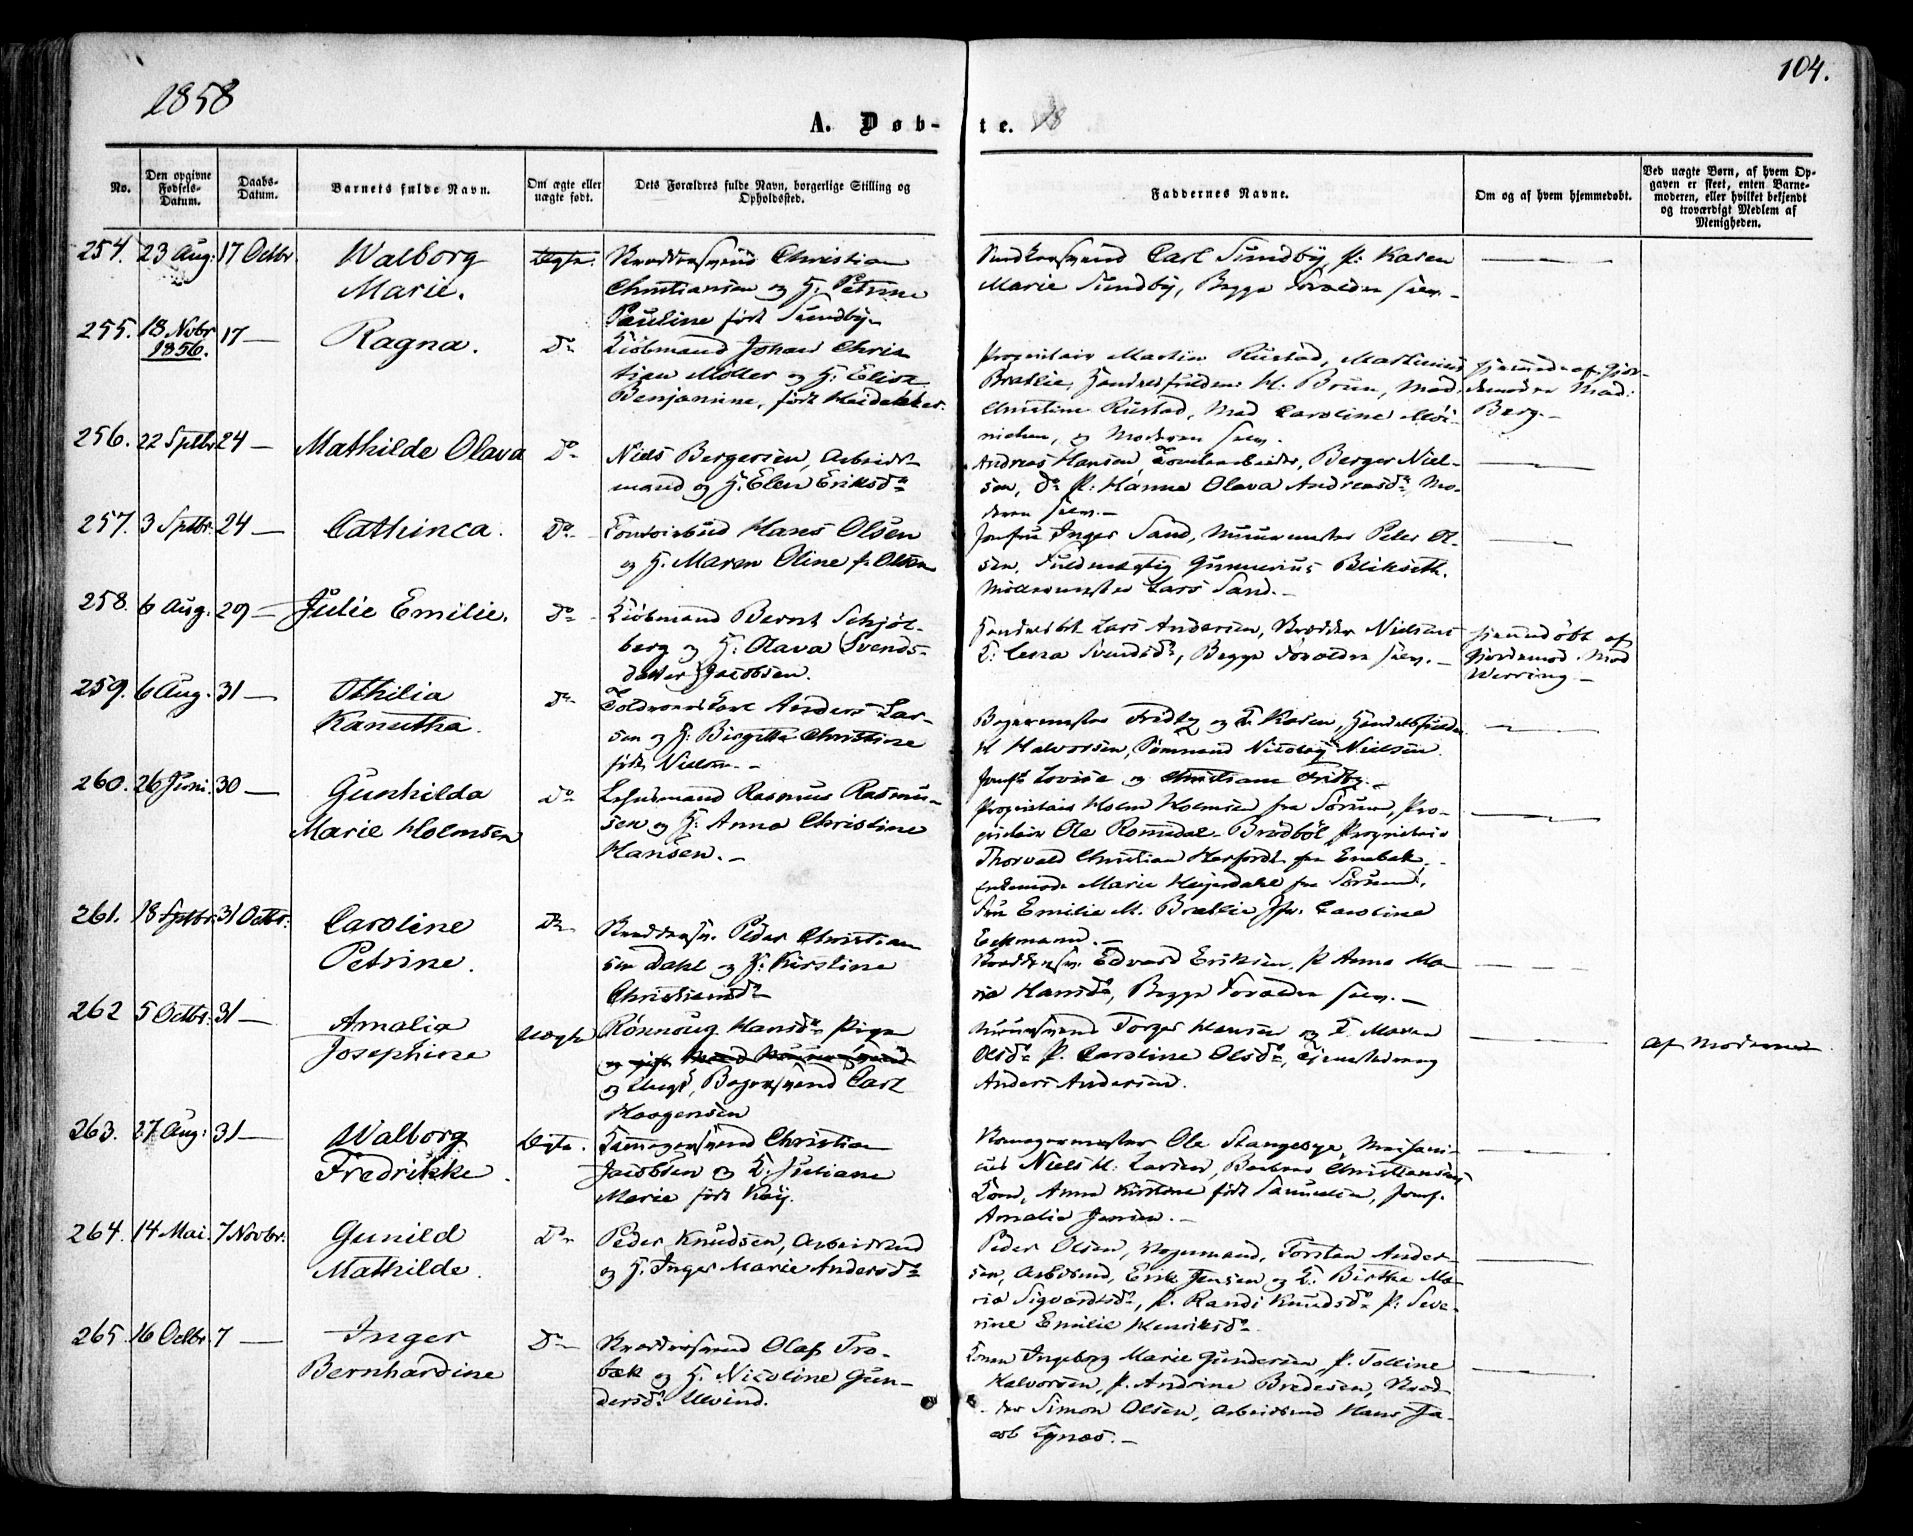 1858
104.
A. Døb-
te.
No.
Den opgivne Fødsels-Datum.
Daabs-Datum.
Barnets fulde Navn.
Om ægte eller uægte født.
Dets Forældres fulde Navn, borgerlige Stilling og Opholdssted.
Faddernes Navne.
Om og af hvem hjemmedøbt.
Ved uægte Børn, af hvem Opgaven er skeet, enten Barnemoderen, eller hvilket bekjendt og troværdigt Medlem af Menigheden.
254. 23 Aug: 17 Octbr. Walborg Ægte.
Marie.
Christian
Christiansen og H. Petrine
Pauline født Sundby
Carl Sundby, P: Karen
Marie Sundby, Begge Forældre selv.
255. 18 Novbr 1856. 17 — Ragna. Do
Kiøbmand Johan Chris
tian Møller og H. Elise
Benjamine, født Heidekker.
Proprietair Martin Rustad, Mathinus
Bratlie, Handelsfuldm: H. Brun, Mad:
Christine Rustad, Mad Caroline
og Moderen selv.
Mad:
Berg.
256. 22 Septbr 24 — Mathilde Olava Do
Niels Bergersen, Arbeids
mand og H. Elen Eriksdr
Andreas Hansen, Berger Niel-
sen, Do P: Hanna Olava Andreasdr, Mo-
deren selv.
257. 3 Septbr. 24 — Cathinca. Do
Contoirbud Hans Olsen
og H. Maren Oline f. Olsen
Jomfru Inger Sand, Muurmester Peter Ol-
sen, Fuldmægtig Gunnerius Blikseth,
Lars Sand.
258. 6 Aug: 29 — Julie Emilie. Do
Kiøbmand Bernt Schjøl-
berg og H: Olava Svends-
datter Jacobsen.
Lars Andersen, Nielsen
Svendsdr, Begge Forældre selv.
hjemmedøbt af
Gjordemod. Mad
Werring
259. 6 Aug. 31 — Othilia Do
Kanutha.
Anders Lar-
sen og H: Birgitte Christine
født Nielsen.
Fridby og K. Karen,
H Halvorsen, Sømand Nicolay Nielsen
Jomfr Lovise og Christiane Fridby.
260. 26 Juni. 30 — Gunhilda Do
Marie Holmsen
Rasmus Rasmus-
sen og H: Anna Christine
Hansen.
Proprietair Holm Holmsen fra Sørum, Pro-
prietair Ole Romsdal Brødbøl Proprietair
Thorvald Christian Herfordt fra Enebak,
Marie Heyerdahl fra Sørum,
Fru Emilie M. Bratlie, Jfr. Caroline
Eckmann.
261. 18 Septbr. 31 Octbr. Caroline Do
Petrine.
Peder Christian
sen Dahl og H: Kirstine
Christiansdr
Edvard Eriksen, P Anna Ma-
ria Hansdr, Begge Forældre selv.
262 5 Octbr. 31 — Amalia Uægte
Josephine
Rønnoug Hansdr Pige
og Ungk, Bagersvend Carl
Haagensen
Muursvend Torger Hansen og K. Maren
Olsdr P. Caroline Olsdr,
Anders Andersen.
Af Moderen
263. 27 Aug: 31 — Walborg Ægte.
Fredrikke.
Christian
Jacobsen og K. Juliane
Marie født Kay.
Ole Stangebye,
Niels H: Larsen, Christiansens
Kone, Anna Kirstine født Samuelsen, Jomf.
Amalia Jensen.
264. 14 Mai. 7 Novbr. Gunild Do
Mathilde.
Peder Knudsen, Arbeidsmd
og H. Inger Marie Andersdr
Peder Olsen, Vognmand, Torsten Ander-
sen, Arbdsmd, Erik Jensen og K. Birthe Ma-
ria Sigvardsdr, P. Randi Knudsdr P: Seve-
rine Emilie Henriksdr
265. 16 Octbr. 7 — Inger Do
Bernhardine
Olaf Tro-
bæk og H. Nicoline Gun-
dersdr Ulvind.
Konen Ingeborg Marie Gundersen P. Tolline
Halvorsen, P. Andrine Bredesen, Skræd-
der Simon Olsen, Arbeidsmd Hans Ja-
cob Lynæs.